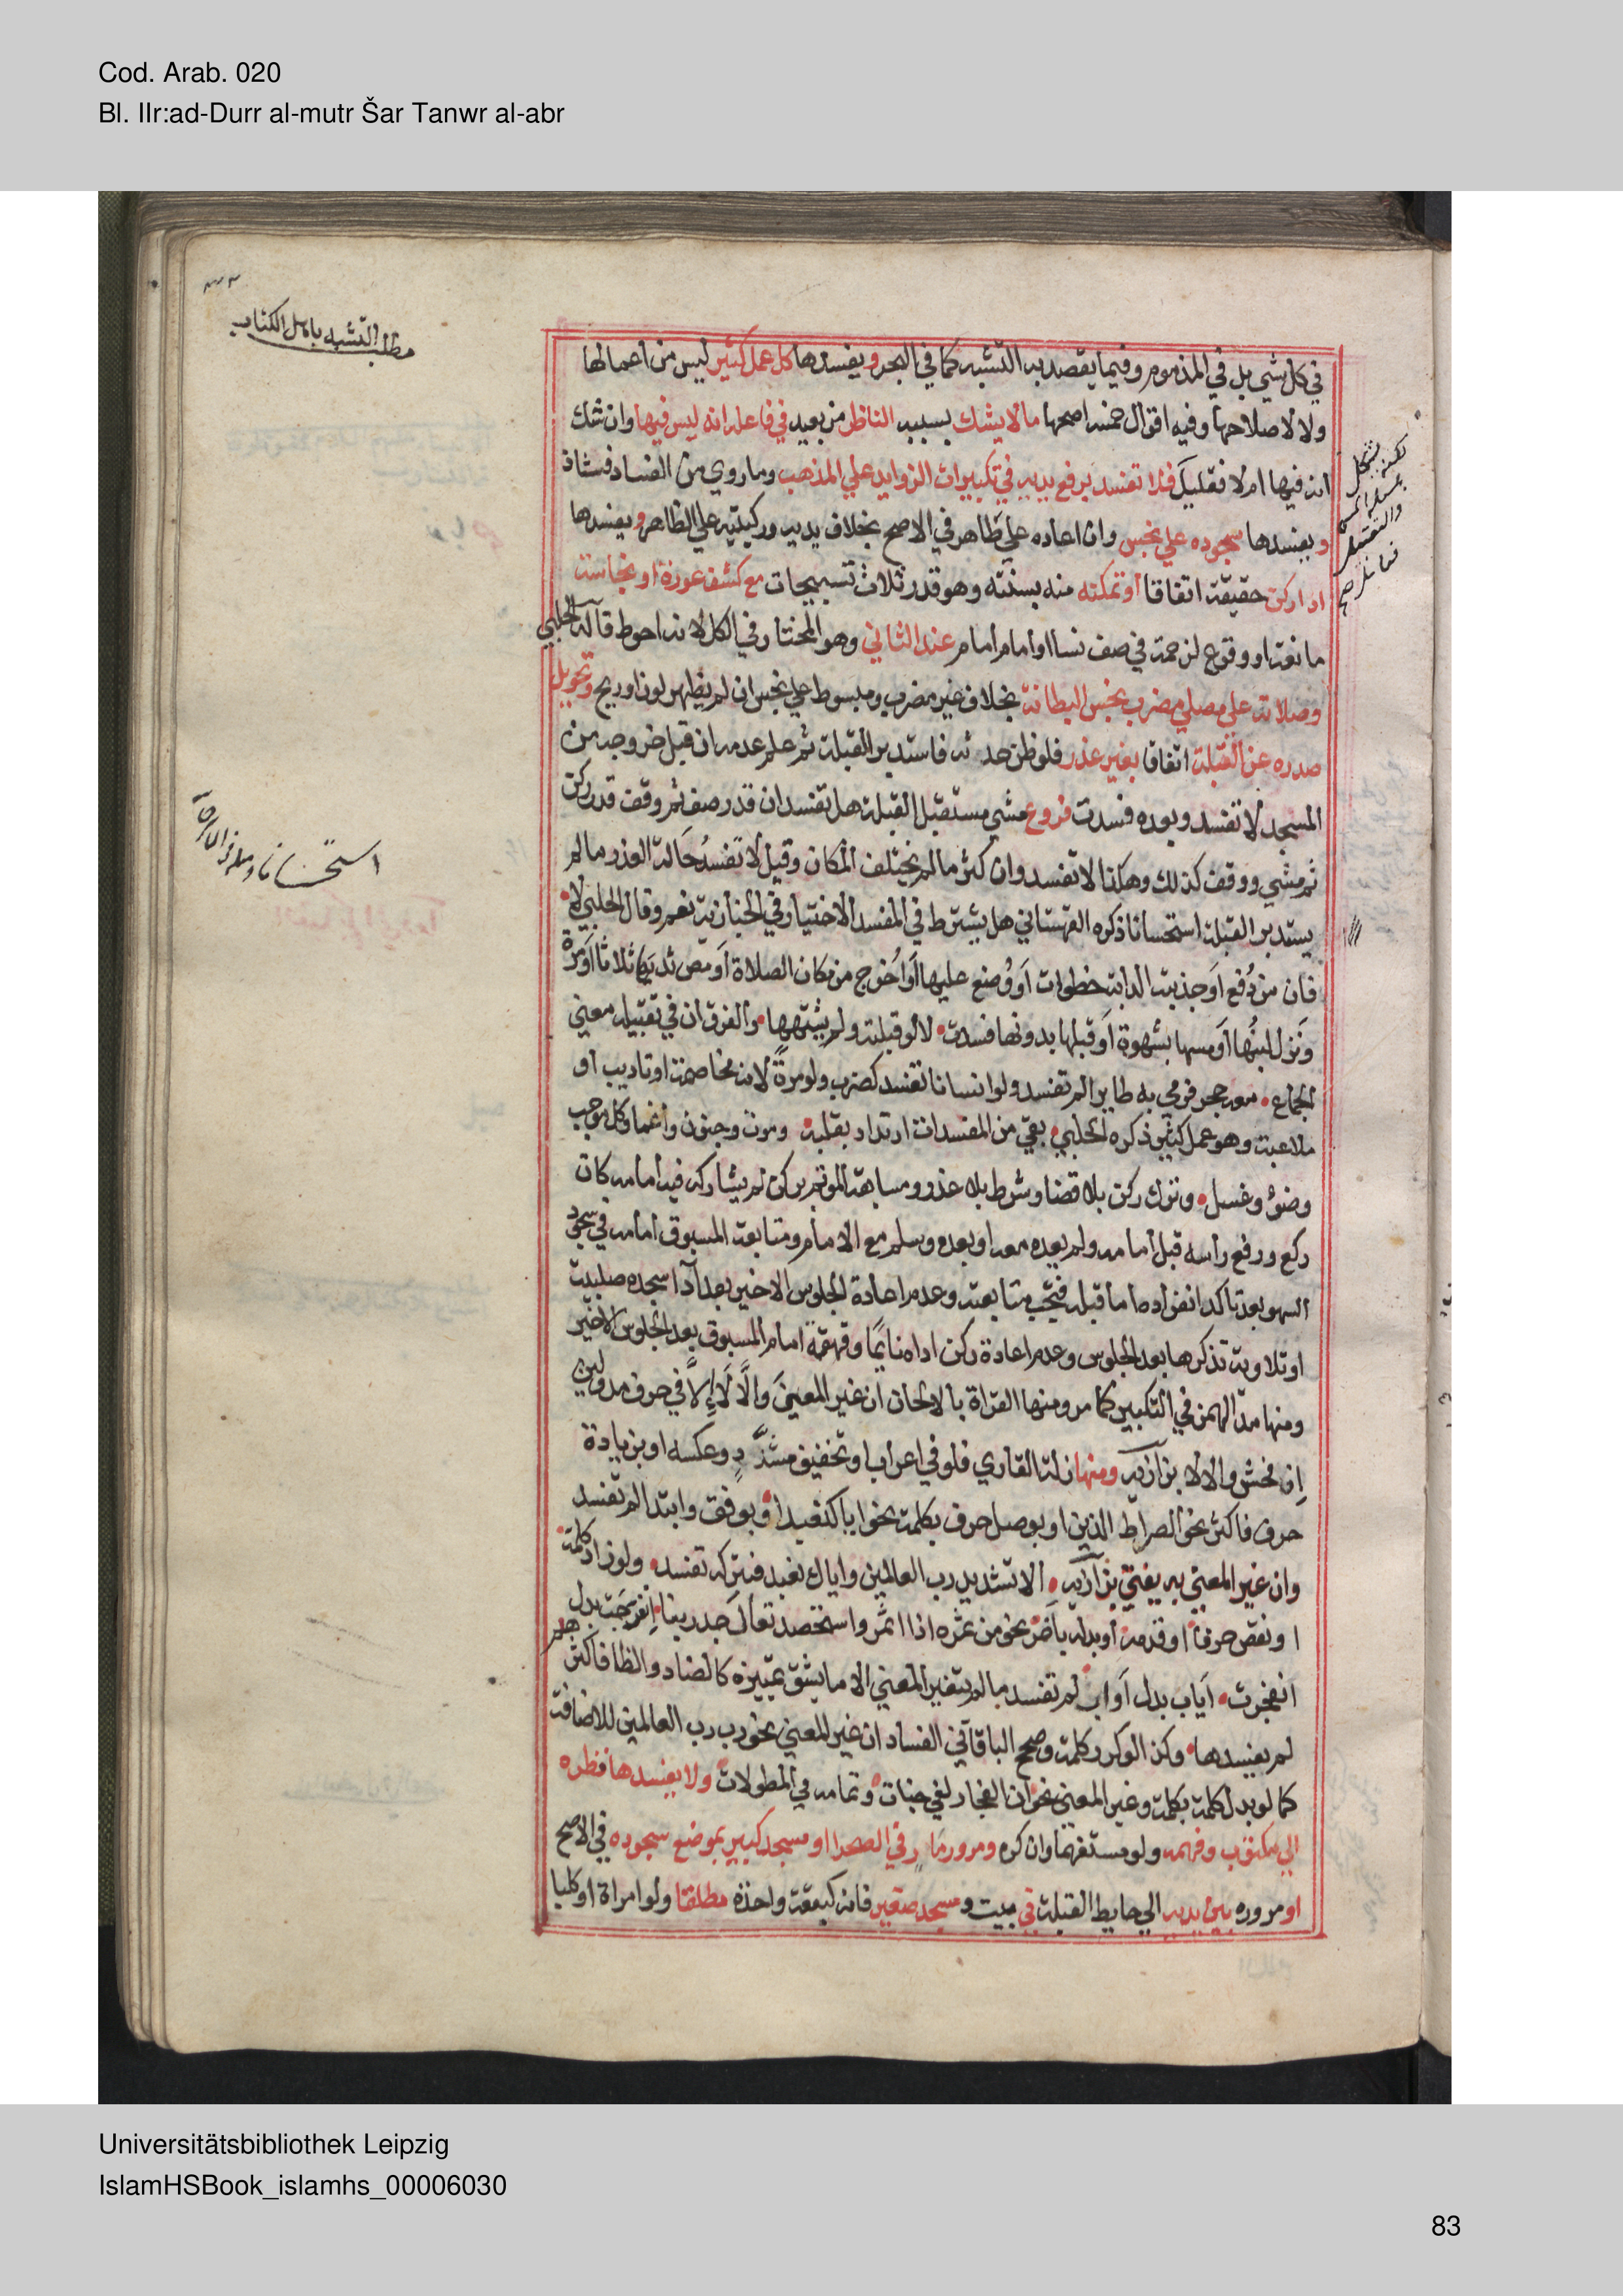 Cod. Arab. 020
Bl. IIr:ad-Durr al-mutr Šar Tanwr al-abr
مطلب التشبه باهل الكتاب
في كل شي بل في المذموم وفيما يقصد به التشبه كما في البحر ويفسدها كل عمل كثير ليس من اعمالها
ولا لاصلاحها وفيه اقوال خمسة اصحها مالا يشك بسببه الناظر من بعيد في فاعله انه ليس فيها وان شك
انه فيها ام لا فقليل فلا تفسد برفع يديه في تكبيرات الزوايد علي المذهب وما روي من الفساد فشاذ
ويفسدها سجوده علي نجس وان اعاده علي طاهر في الاصح بخلاف يديه وركبتيه علي الظاهر ويفسدها
ادا ركن حقيقة اتفاقا أو تمكنه منه بسنته وهو قدر ثلاث تسبيحات مع كشف عورة او نجاسة
مانعة او وقوع لزحمة في صف نسا او امام أمام عند الثاني وهو المختار في الكل لانه احوط قاله الحلبي
وصلاته علي مصلي مضرب نجس البطانة بخلاف غير مضرب ومبسوط علي نجس ان لم يظهر لون او ريح وتحويل
صدره عن القبلة اتفاقا بغير عذر فلو ظن حدثه فاستدبر القبلة ثم علم عدمه ان قبل خروجه من
المسجد لا تفسد وبعده فسدت فروع مشي مستقبل القبلة هل تفسد ان قدر صف ثم وقف قدر ركن
ثم مشي ووقف كذلك وهكذا لا تفسد وان كثر ما لم يختلف المكان وقيل لا تفسد حالة العذر ما لم
يستدبر القبلة استحسانا ذكره القهستاني هل يشترط في المفسد الاختيار في الخبازية نعم وقال الحلبي لا
فان من دُفع أو جذبته الدابة خطوات أو وُضع عليها أو أُخرج من مكان الصلاة أو مص ثديها ثلاثا أو مرة
ونزل لبنُها أو مسها بشهوة أو قبلها بدونها فسدت لا لو قبلته ولم يشتهها والفرق ان في تقبيله معني
الجماع معه حجر فرمي به طايرا لم تفسد ولو انسانا تفسد كضرب ولو مرةً لانه مخاصمة او تاديب او
ملاعبة وهو عمل كثير ذكره الحلبي بقي من المفسدات ارتداد بقلبه وموت وجنون واغما وكل موجب
وضوء وغسل وترك ركن بلا قضا وشرط بلا عذر ومسابقة الموتم بركن لم يشاركه فيه أمامه كان
ركع ورفع رأسه قبل أمامه ولم يعده معه او بعده وسلم مع الامام ومتابعة المسبوق أمامه في سجود
السهو بعد تاكد انفراده اما قبله فتجب متابعته وعدم اعادة الجلوس الاخير بعد أدا سجدة صلبية
او تلاوية تذكرها بعد الجلوس وعدم اعادة ركن اداه نايما وقهقهة امام المسبوق بعد الجلوس الاخير
ومنها مد الهمز في التكبير كما مر ومنها القراة بالالحان ان غير المعني والَّا لا إلَّا في حرف مد ولين
إن فحش والا لا بزازية ومنها زلة القاري فلو في اعراب او تخفيف مشدَّدٍ وعكسه او بزيادة
حرف فاكثر نحو الصراط الذين او بوصل حرف بكلمة نحو ايا كنعبد او بوقف وابتدا لم تفسد
وان غير المعني به يفتي بزازية الا تشديد رب العالمين واياك نعبد فبتركه تفسد ولو زاد كلمة
او نقص حرفا او قدمه أو بدله بآخر نحو من ثمره اذا اثمر واستحصد تعال جد ربنا انفرجت بدل
انفجرت أياب بدل أواب لم تفسد ما لم يتغير المعني الا ما يشق تمييزه كالضاد والظا فاكثرهم
لم يفسدها وكذا لو كرر كلمة وصحح الباقاني الفساد ان غير المعني نحو رب رب العالمين للاضافة
كما لو بدل كلمة بكلمة وغير المعني نحو ان الفجار لفي جنات وتمامه في المطولات ولا يفسدها نظره
الي مكتوب وفهمه ولو مستفهما وان كره ومرور مارٍ في الصحرا او مسجد كبير بموضع سجوده في الاصح
او مروره بين يديه الي حايط القبلة في بيت ومسجد صغير فانه كبقعة واحدة مطلقا ولو امراة او كلبا
Universitätsbibliothek Leipzig
IslamHSBook_islamhs_00006030
83